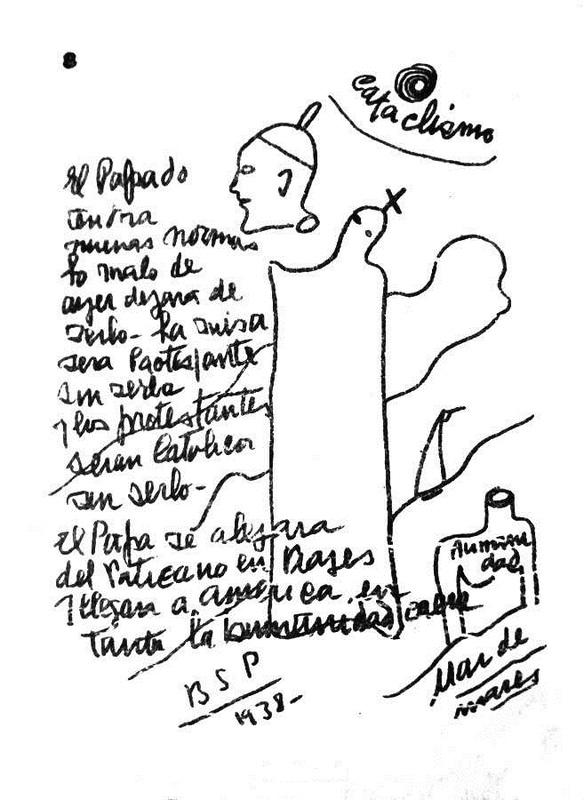 8
cataclismo
El Papado
tendra
nuevas normas
lo malo de
ayer dejara de
serlo - la misa
sera Protestante
sin serlo
y los protestantes
seran Catolicos
sin serlo -
El Papa se alejara
del Vaticano en Viajes
y llegara a America en
tanto la humanidad cae
Humani
dad
Mar de
mares
BSP
1938 -